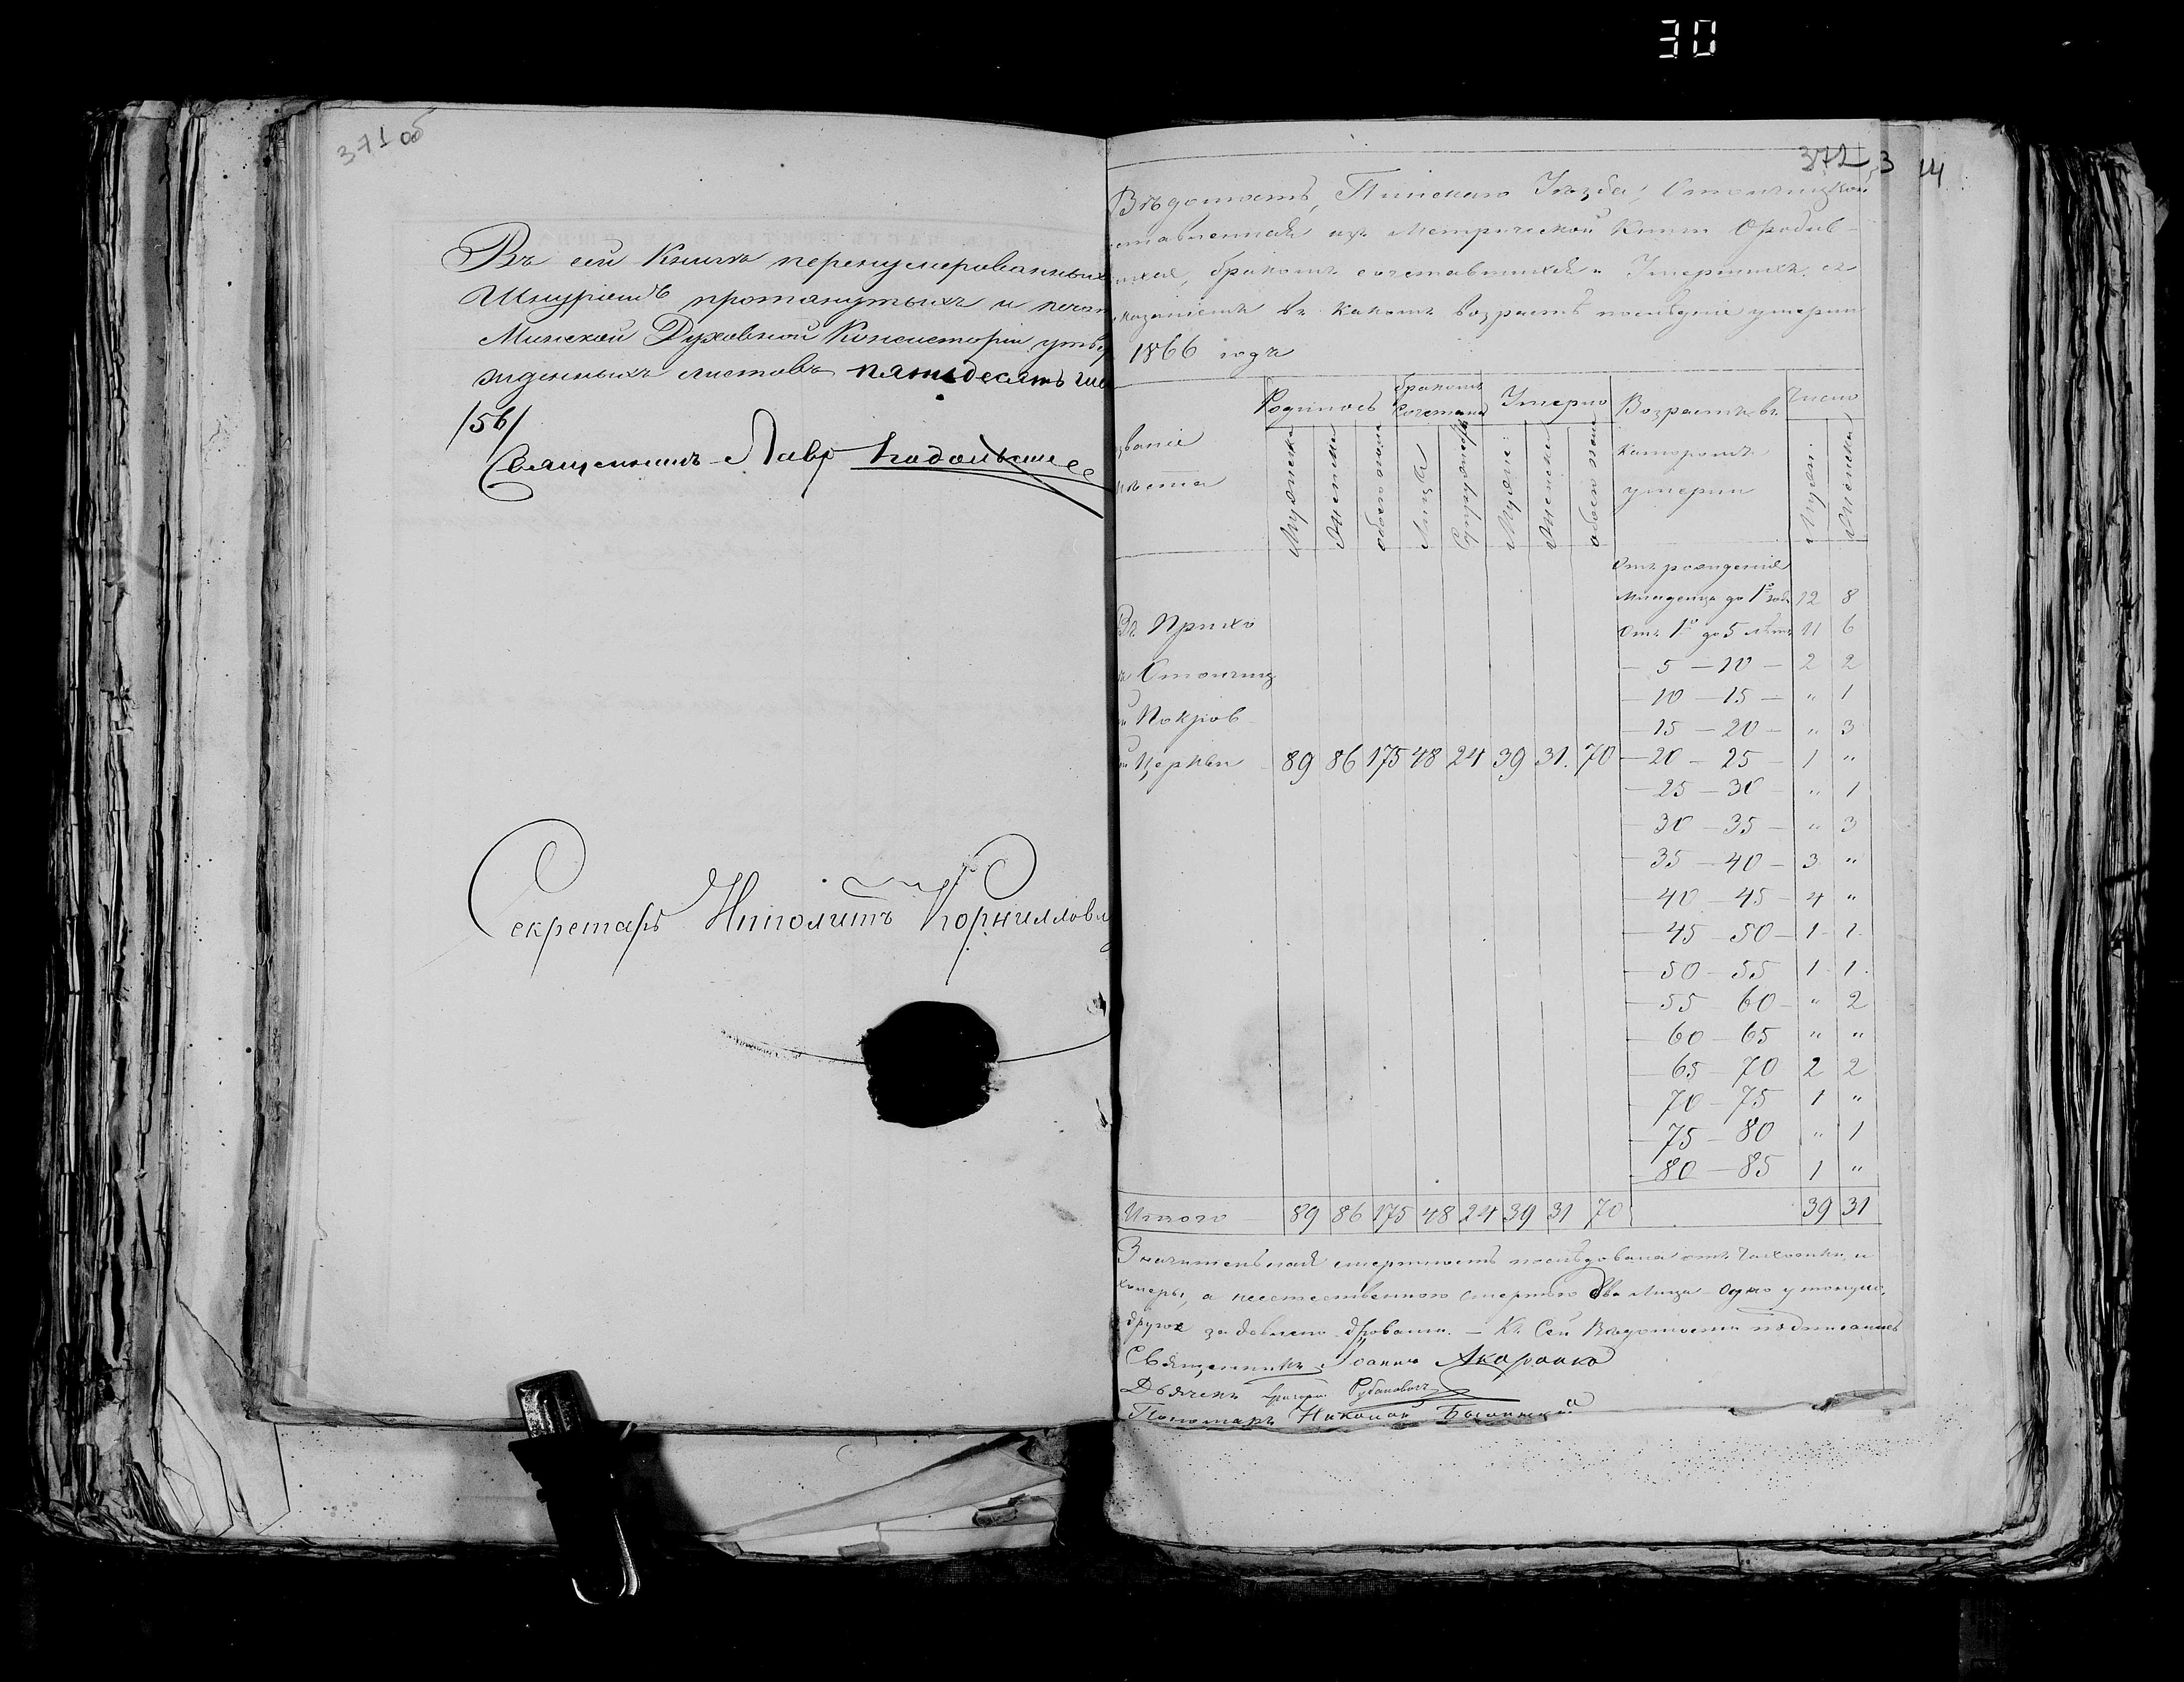 30
371 об
Въ сей Книгѣ перенумерованныхъ
Шнуромъ протянутыхъ и печат
Минской Духовной Консисторіи утвер
жденныхъ листовъ пятьдесятъ ше
/56/
Священникъ Лавр
Секретарь Ипполитъ Корниллови
372 3 14
Вѣдомость, Пинскаго Уѣзда, Стошицкой
ставленная изъ Метрической Книги О родив-
шихся, бракомъ сочетавшихся и Умершихъ, съ
казаніемъ въ какомъ возрастѣ послѣдніе умерли
1866 годъ
званіе
мѣста
Родилось
бракомъ Сочетано
Умерло
Возрастъ въ
Которомъ
умерли
Число
Мужеска
Женска
обоего пола
Лицъ
Супружествъ
Мужес:
Женска
обоего пола
Мужес:
Женска
Отъ рожденія
Младенца до 1го года 12 8
Отъ 1го до 5 лѣтъ 11 6
— 5 — 10 — 2 2
— 10 — 15 — " 1
— 15 — 20 — " 3
— 20 — 25 — 1 "
— 25 — 30 — " 1
— 30 — 35 — " 3
— 35 — 40 — 3 "
— 40 — 45 — 4 "
— 45 — 50 — 1 1
— 50 — 55 1 1
— 55 60 — " 2
— 60 — 65 " "
— 65 — 70 2 2
— 70 — 75 1 "
— 75 — 80 " 1
— 80 — 85 1 "
Въ Прихо
Стошиц
Покров
Церкви 89 86 175 48 24 39 31 70
Итого 89 86 175 48 24 39 31 70 39 31
Значительная смертность послѣдовала отъ и
холеры, а неестественною смертью два лица — Одно утонуло,
другое задавлено дровами. — Къ Сей Вѣдомости подписались
Священникъ Іоаннъ
Дьячекъ Григорій Рубановичъ
Пономарь Николай